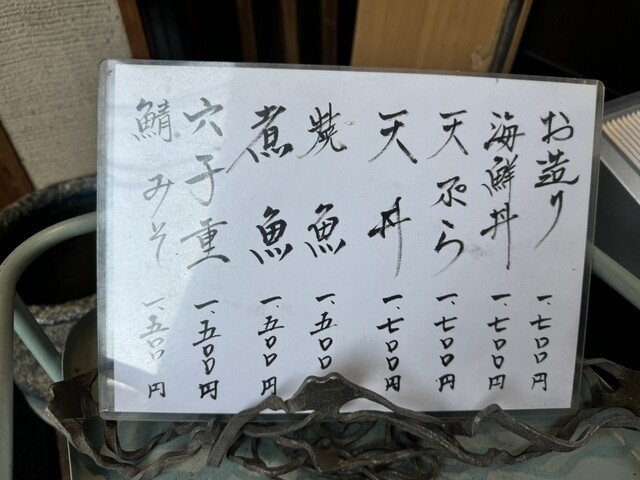 お造り 一、七〇〇円
海鮮丼 一、七〇〇円
天ぷら 一、七〇〇円
天丼 一、七〇〇円
焼魚 一、五〇〇円
煮魚 一、五〇〇円
穴子重 一、五〇〇円
鯖みそ 一、五〇〇円